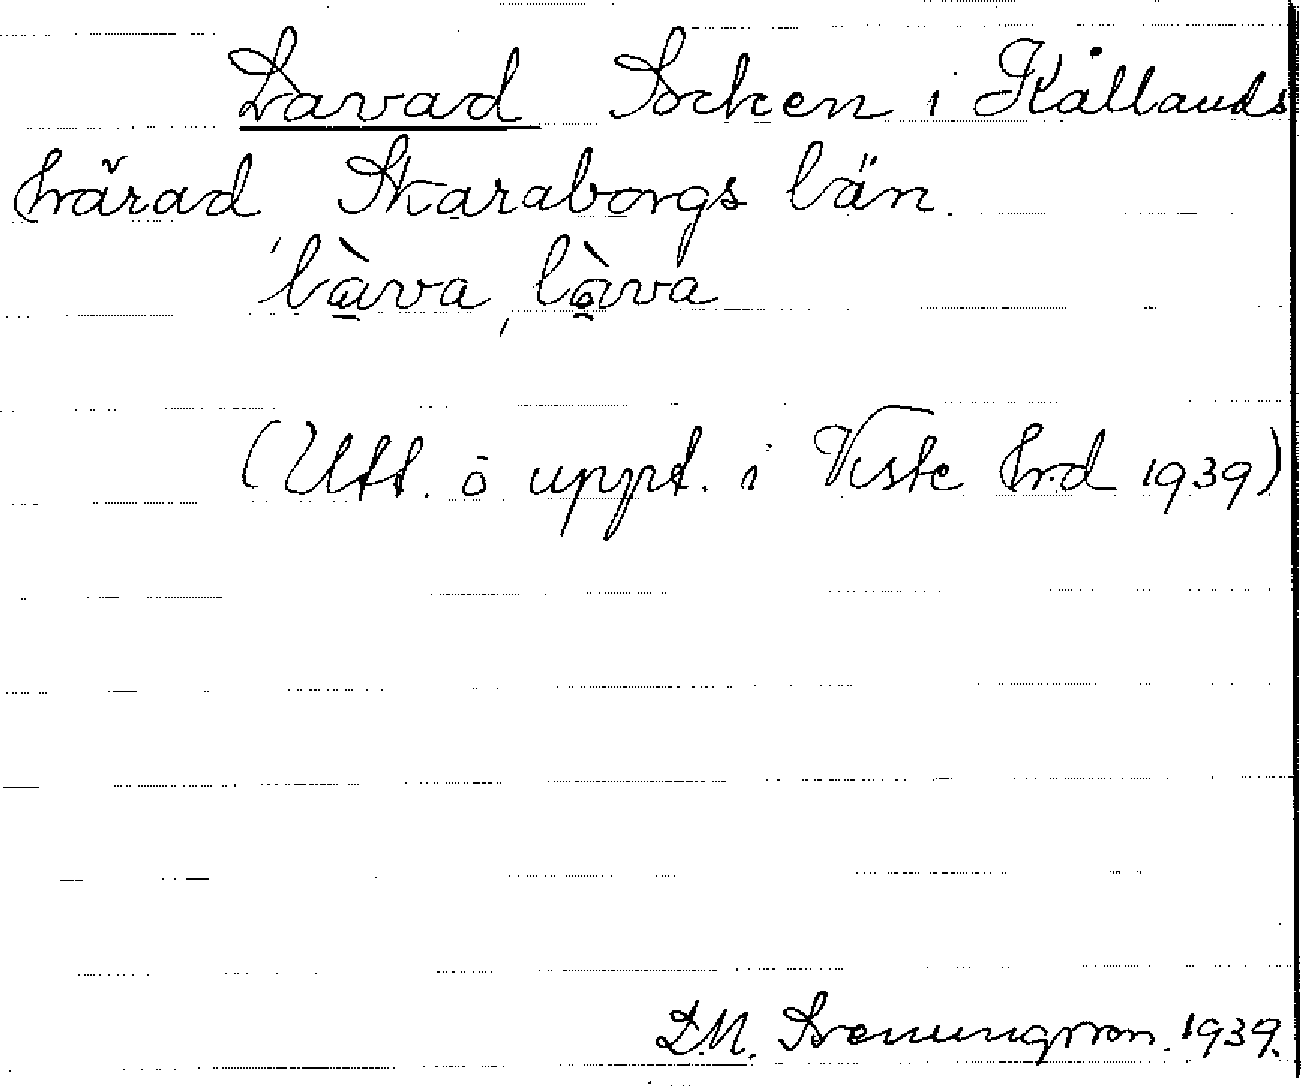 Lavad Socken i Kållands
härad Skaraborgs län.
'làva, làva
(Utt. o uppt. i Viste hrd 1939)
D.N. Svenungsson. 1939.